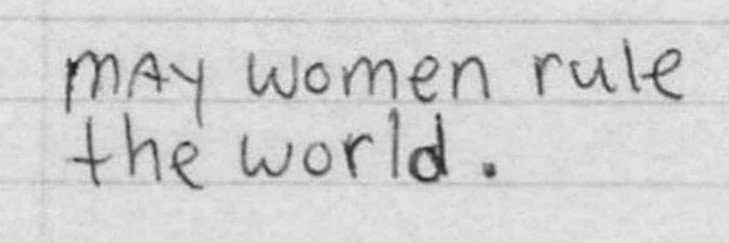 mAy women rule
the world.